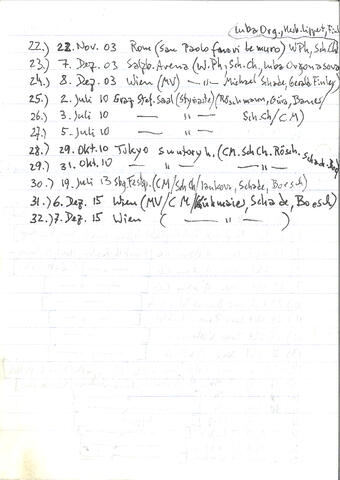 (Luba Org., Herb. Lippert, Finl
22.) 22. Nov. 03 Rom (San Paolo fuori le muro) W.Ph, Sch.Ch
23.) 7. Dez. 03 Salzb. Arena (W.Ph, Sch.Ch, Luba Orgonasova
24.) 8. Dez. 03 Wien (MV) — „ — Michael Schade, Gerald Finley)
25.) 2. Juli 10 Graz Stef. Saal (Styriarte) (Röschmann, Gura,
26.) 3. Juli 10 — „ — Sch.Ch / CM)
27.) 5. Juli 10 — „ —
28.) 29. Okt. 10 Tokyo Suntory h. (CM. Sch.Ch. Rösch.
29.) 31. Okt. 10 — „ — Schade.
30.) 19. Juli 13 Sbg. Festsp. (CM/Sch.Ch/ Schade, Boesch)
31.) 6. Dez. 15 Wien (MV/CM/ Schade, Boesch)
32.) 7. Dez. 15 Wien ( — „ — )